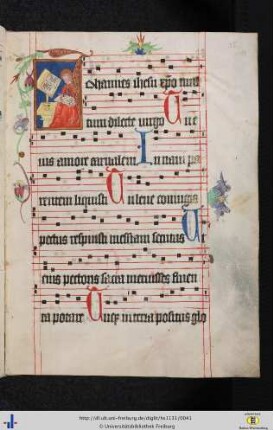 ohannes ihesu xpo mul
tum dilecte virgo Tu e
ius amore carnalem In naui pa
rentem liquisti Tu leue coniugis
pectus respuisti messiam secutus Ut
eius pectoris sacra meruisses fluen
ta potare Tuq; in terra positus glo
http://dl.ub.uni-freiburg.de/diglit/hs1131/0041
© Universitätsbibliothek Freiburg